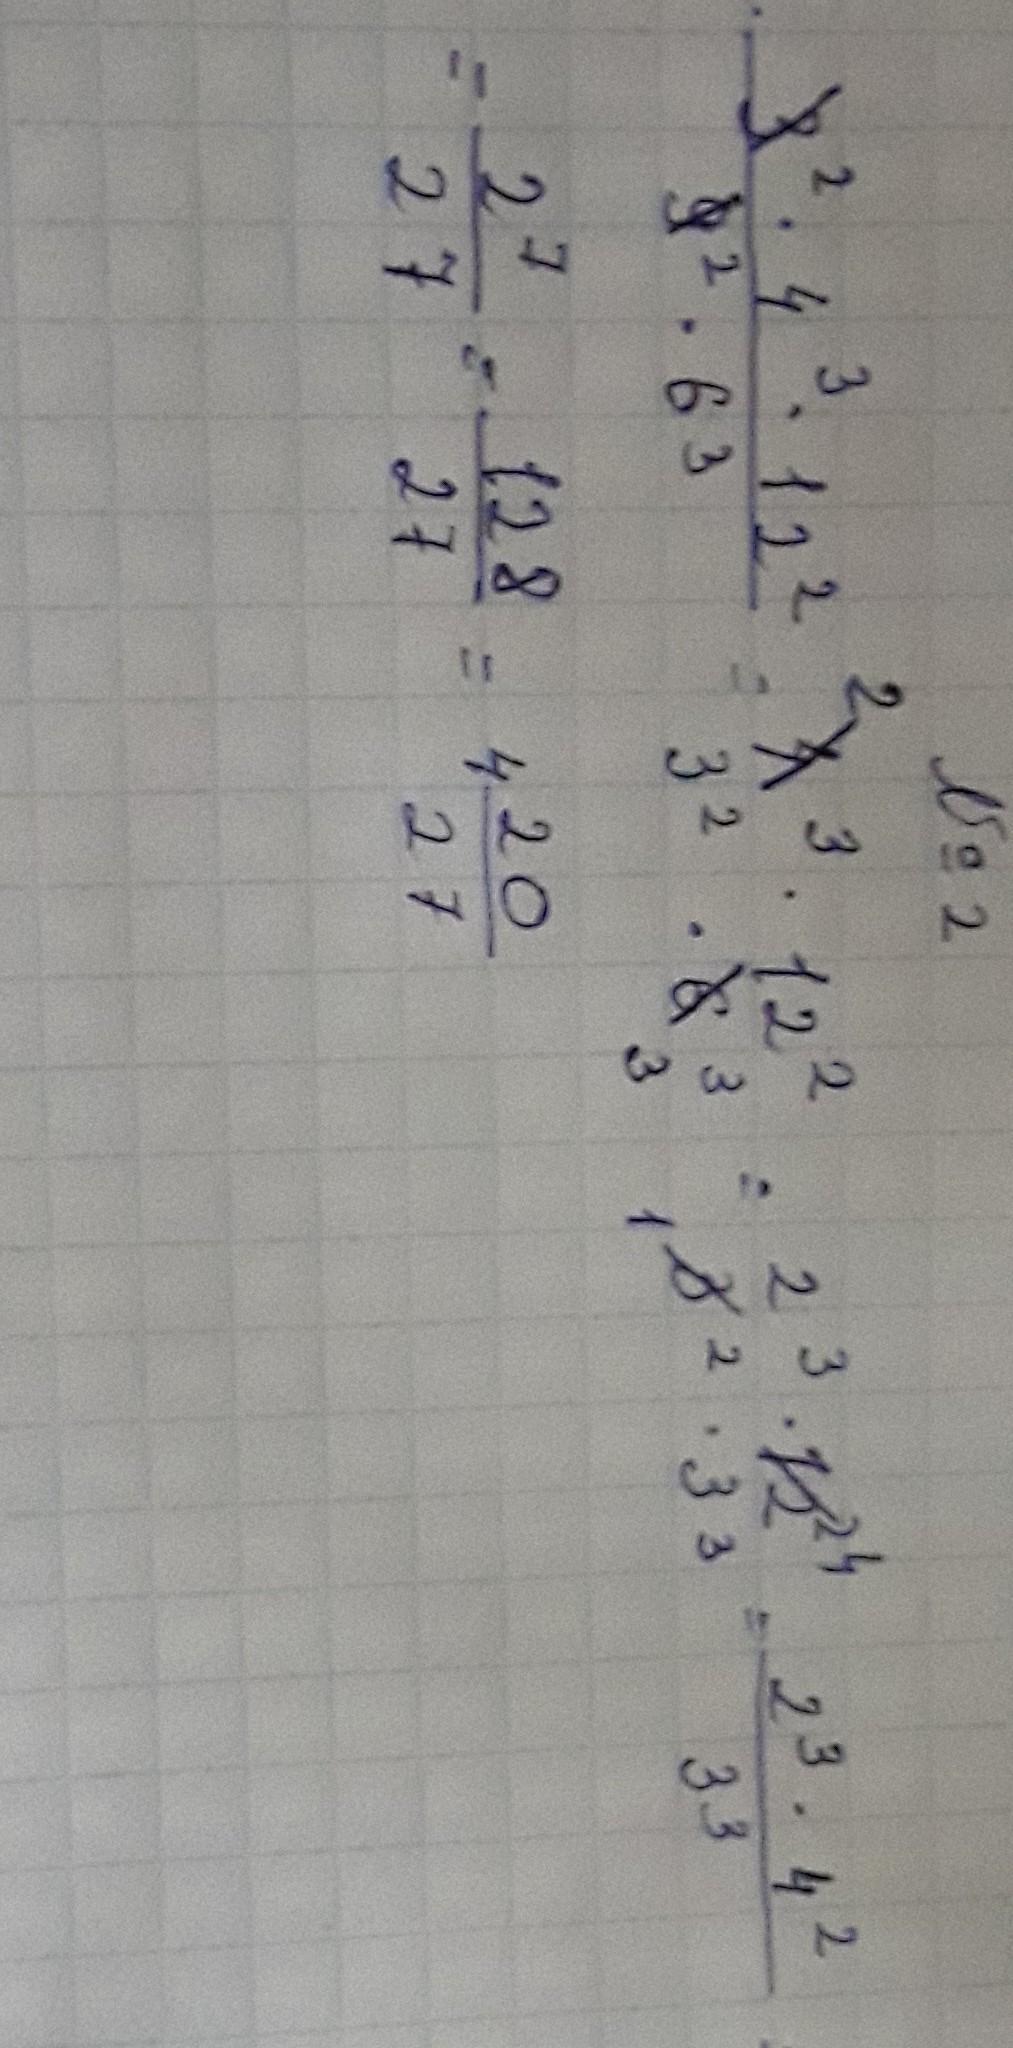 № 2
3² · 4³ · 12² / 9² · 6³ = 2 4³ · 12² / 3² · 6³ 3 = 2³ · 12² 4 / 1 3² · 3³ = 2³ · 4² / 3³
= 2⁷ / 27 = 128 / 27 = 4 20/27